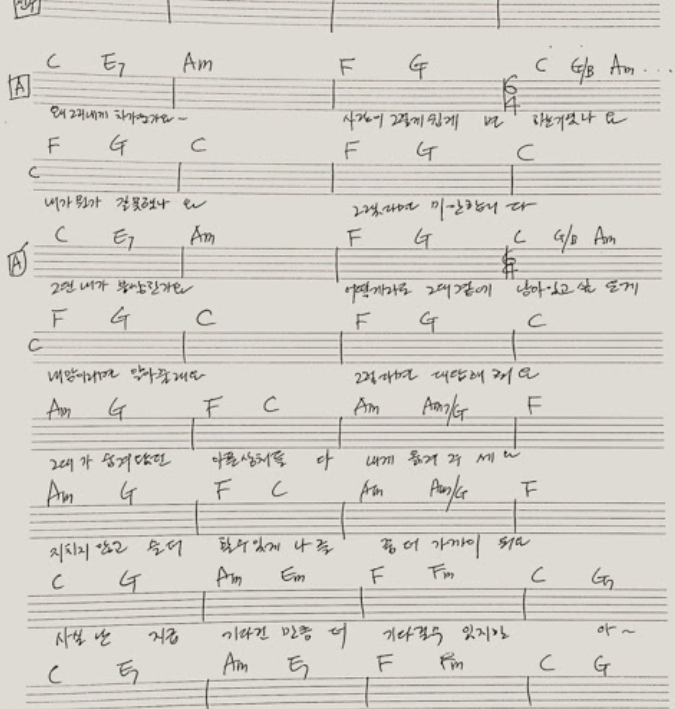 C E7 Am F G C G/B Am ...
A
왜 그리 내게 차가운가요~ 사랑이 그렇게 쉽게 변 하는거였나 요
F G C F G C
C
내가 뭔가 잘못했나 요 그랬다면 미안합니 다
C E7 Am F G C G/B Am
A'
그댄 내가 불쌍한가요 어떻게라도 그대 곁에 남아있고 싶 은게
F G C F G C
C
내 맘이라면 알아줄래요 그렇다면 대답해 줘 요
Am G F C Am Am7/G F
그대 가 숨겨왔던 아픈상처들 다 내게 옮겨 주 세 요
Am G F C Am Am7/G F
지치지 않고 슬퍼 할수있게 나를 좀 더 가까이 둬요
C G Am Em F Fm C G7
사실 난 지금 기다린 만큼 더 기다릴수 있지만 아~
C E7 Am E7 F Fm C G